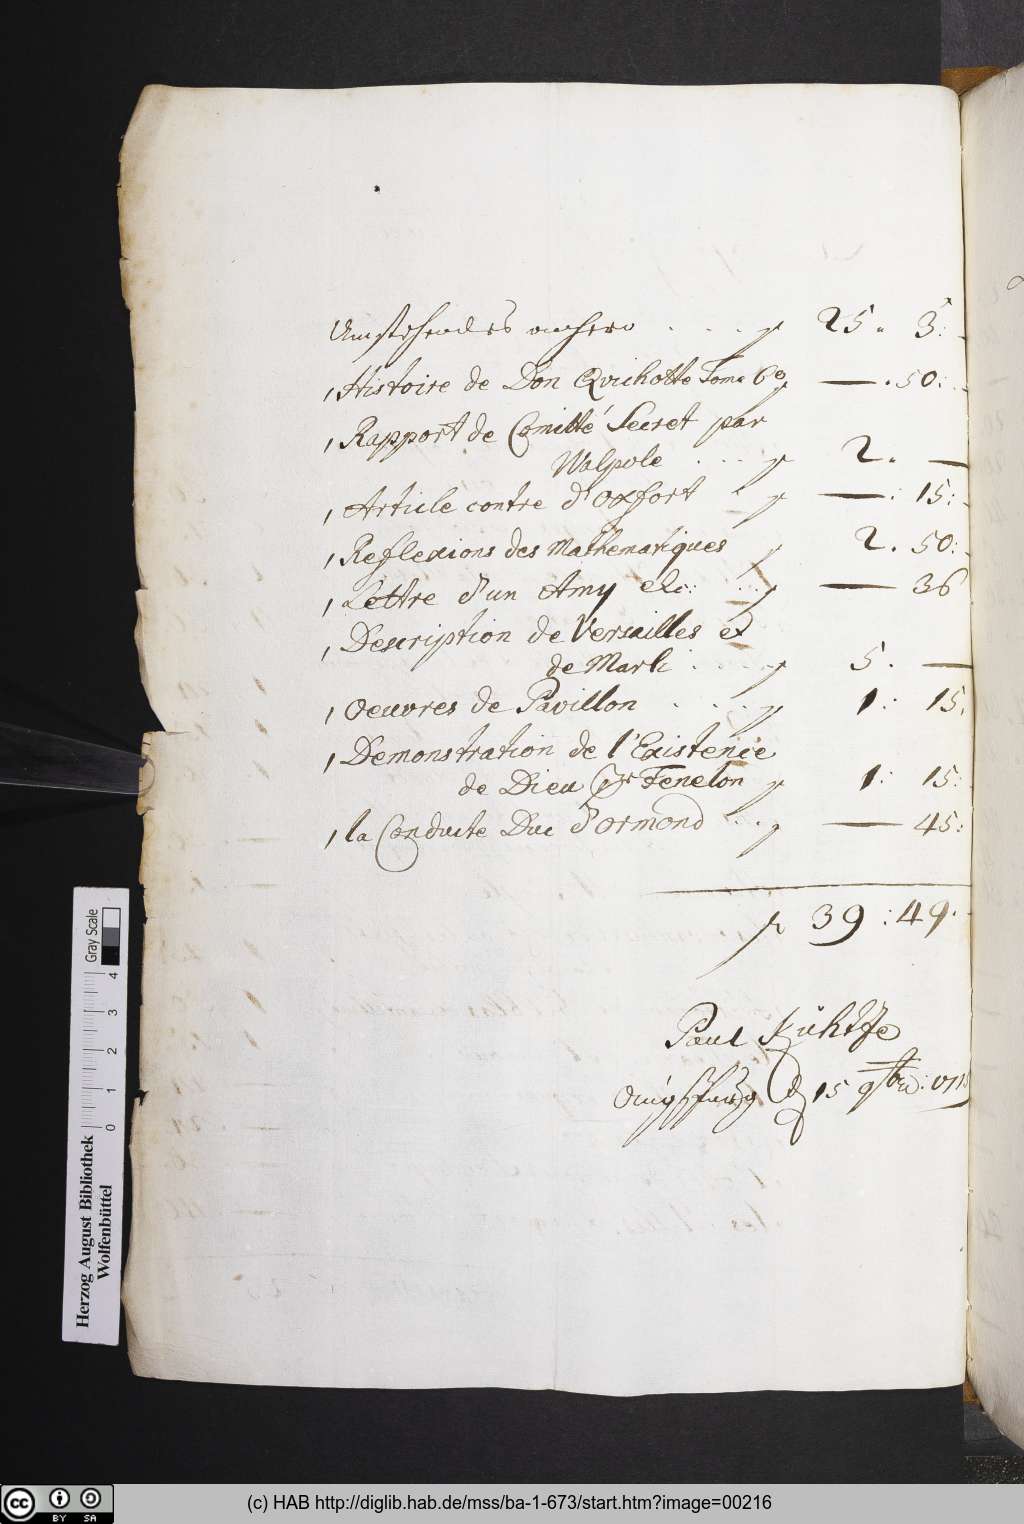 Umstehendes anhero . . . . f 25. 3:
1 Histoire de Don Quichotte Tome 6e f — . 50:
1 Rapport de Comitté Secret par
Walpole . . . . f 2. —
1 Article contre d'oxfort . f — : 15:
1 Reflexions des Mathematiques f 2. 50:
1 Lettre d'un Amy etc: . . f — 36
1 Description de Versailles et
de Marli . . . . f 5. —
1 oeuvres de Pavillon . . . . f 1: 15.
1 Demonstration de l'Existence
de Dieu pr Fenelon f 1: 15:
1 la Conduite Duc d'ormond . . f — 45:
f 39 : 49.
Paul Kühtze
Augspurg 15
Herzog August Bibliothek
Wolfenbüttel
0 1 2 3 4
Gray Scale
cc BY SA
(c) HAB http://diglib.hab.de/mss/ba-1-673/start.htm?image=00216